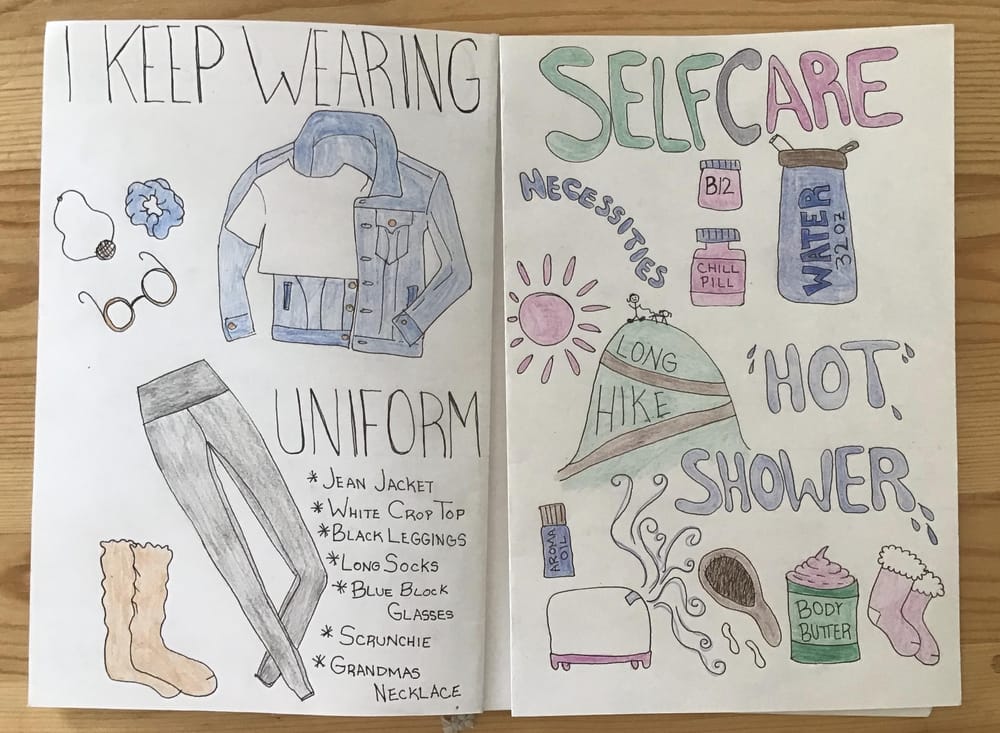 I KEEP WEARING
UNIFORM
* JEAN JACKET
* WHITE CROP TOP
* BLACK LEGGINGS
* LONG SOCKS
* BLUE BLOCK
GLASSES
* SCRUNCHIE
* GRANDMAS
NECKLACE
SELFCARE
NECESSITIES
B12
CHILL
PILL
WATER
32 OZ
LONG
HIKE
HOT
SHOWER
AROMA
OIL
BODY
BUTTER